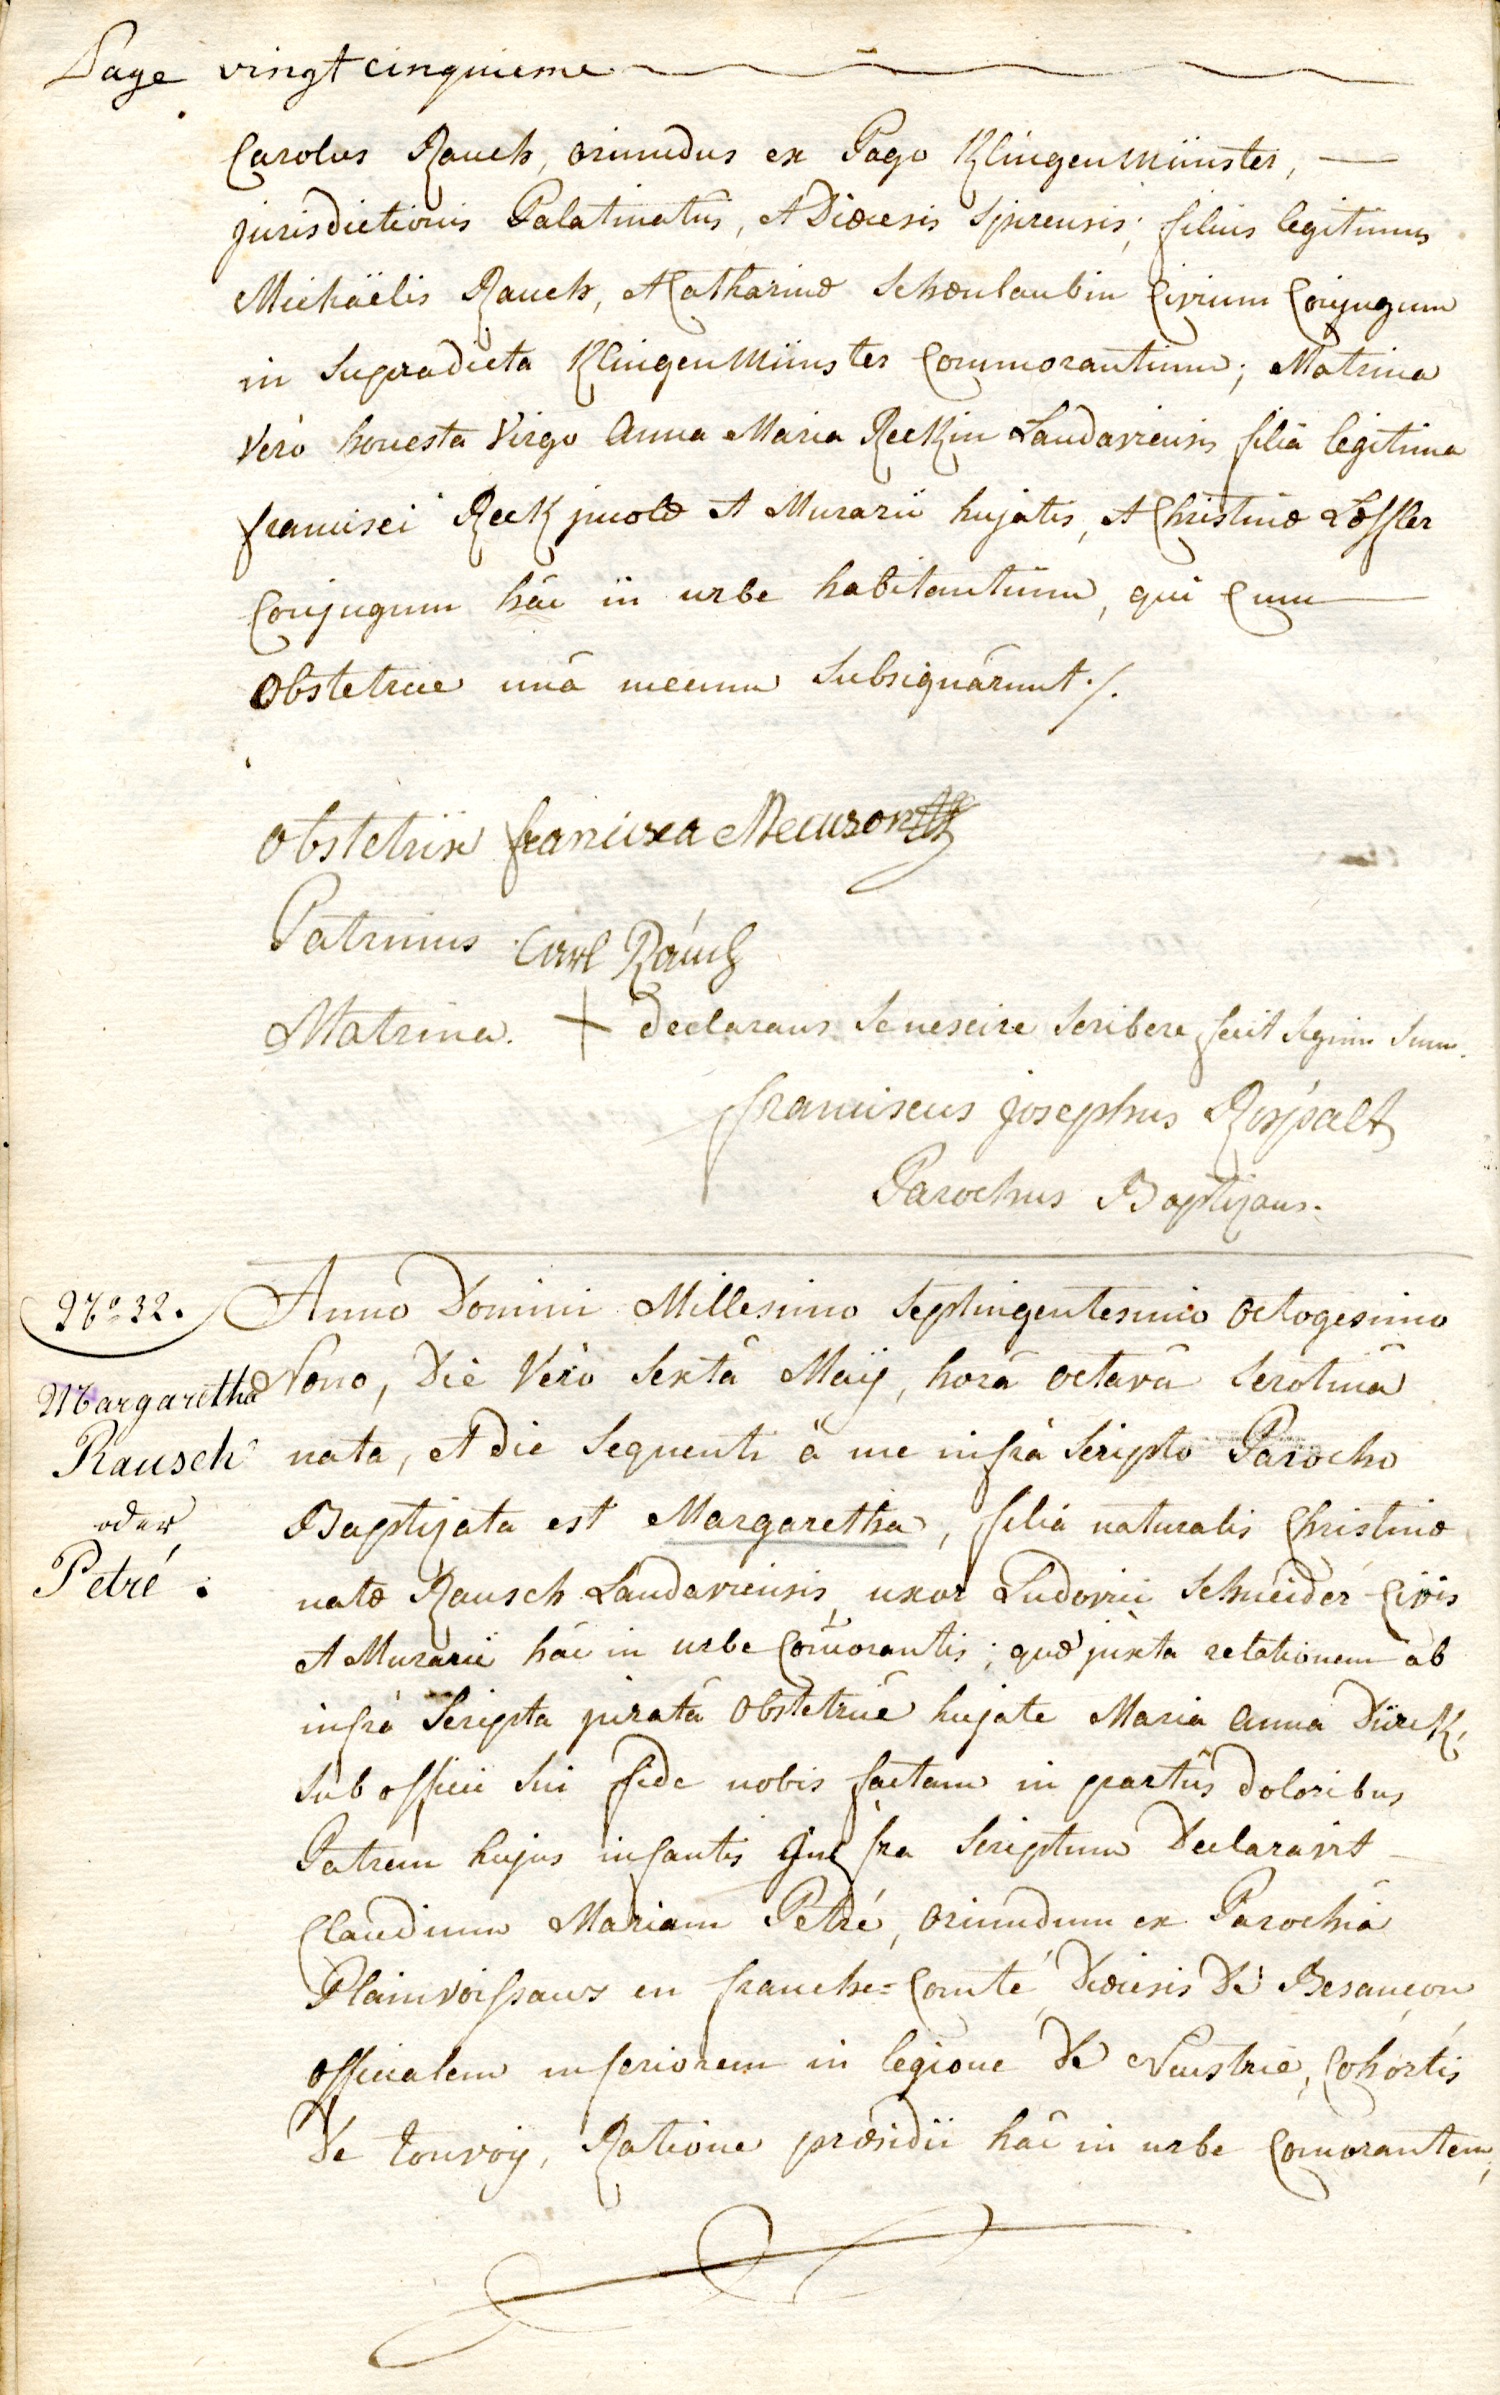 Page vingt cinquieme
Carolus Rauch, oriundus ex Pago KlingenMünster,
jurisdictionis Palatinatûs, et Diœcesis Spirensis; filius legitimus
Michaëlis Rauch, et Catharinæ Schœnlaubin Civium Conjugum
in supradicta KlingenMünster Commorantium; Matrina
Verò honesta Virgo Anna Maria ReeKin Landaviensis filia legitima
francisci ReeK incolæ et Murarii hujatis, et Christinæ Lœffler
Conjugum hâc in urbe habitantium, qui Cum
Obstetrice unâ mecum Subsignârunt ./.
obstetrix francisca
Patrinus Carl Rauch
Matrina. + declarans se nescire scribere fecit signum suum.
franciscus josephus Rospalt
Parochus Baptizans.
Nº 32.
Anno Domini Millesimo Septingentesimo Octogesimo
Margaretha
Nono, Die Verò Sextâ Maij, horâ octavâ Serotinâ
Rausch
nata, et die sequenti â me infrà scripto Parocho
oder
Baptizata est Margaretha, filia naturalis Christinæ
Petré.
natæ Rausch Landaviensis, uxor Ludovici Schneider Civis
et Murarii hâc in urbe Com̄orantis; quæ juxta relationem ab
infrà scripta juratâ Obstetrice hujate Maria Anna DürcK,
sub officii sui fide nobis factam in partûs doloribus
Patrem hujus infantis infra scriptum Declaravit
Claudium Mariam Petré, oriundum ex Parochiâ
Plainvoissaux en franche=Comté, Diœcesis De Besançon
officialem inferiorem in legione De Neustrie, Cohortis
De Touvoy, Ratione præsidii hâc in urbe Comorantem,